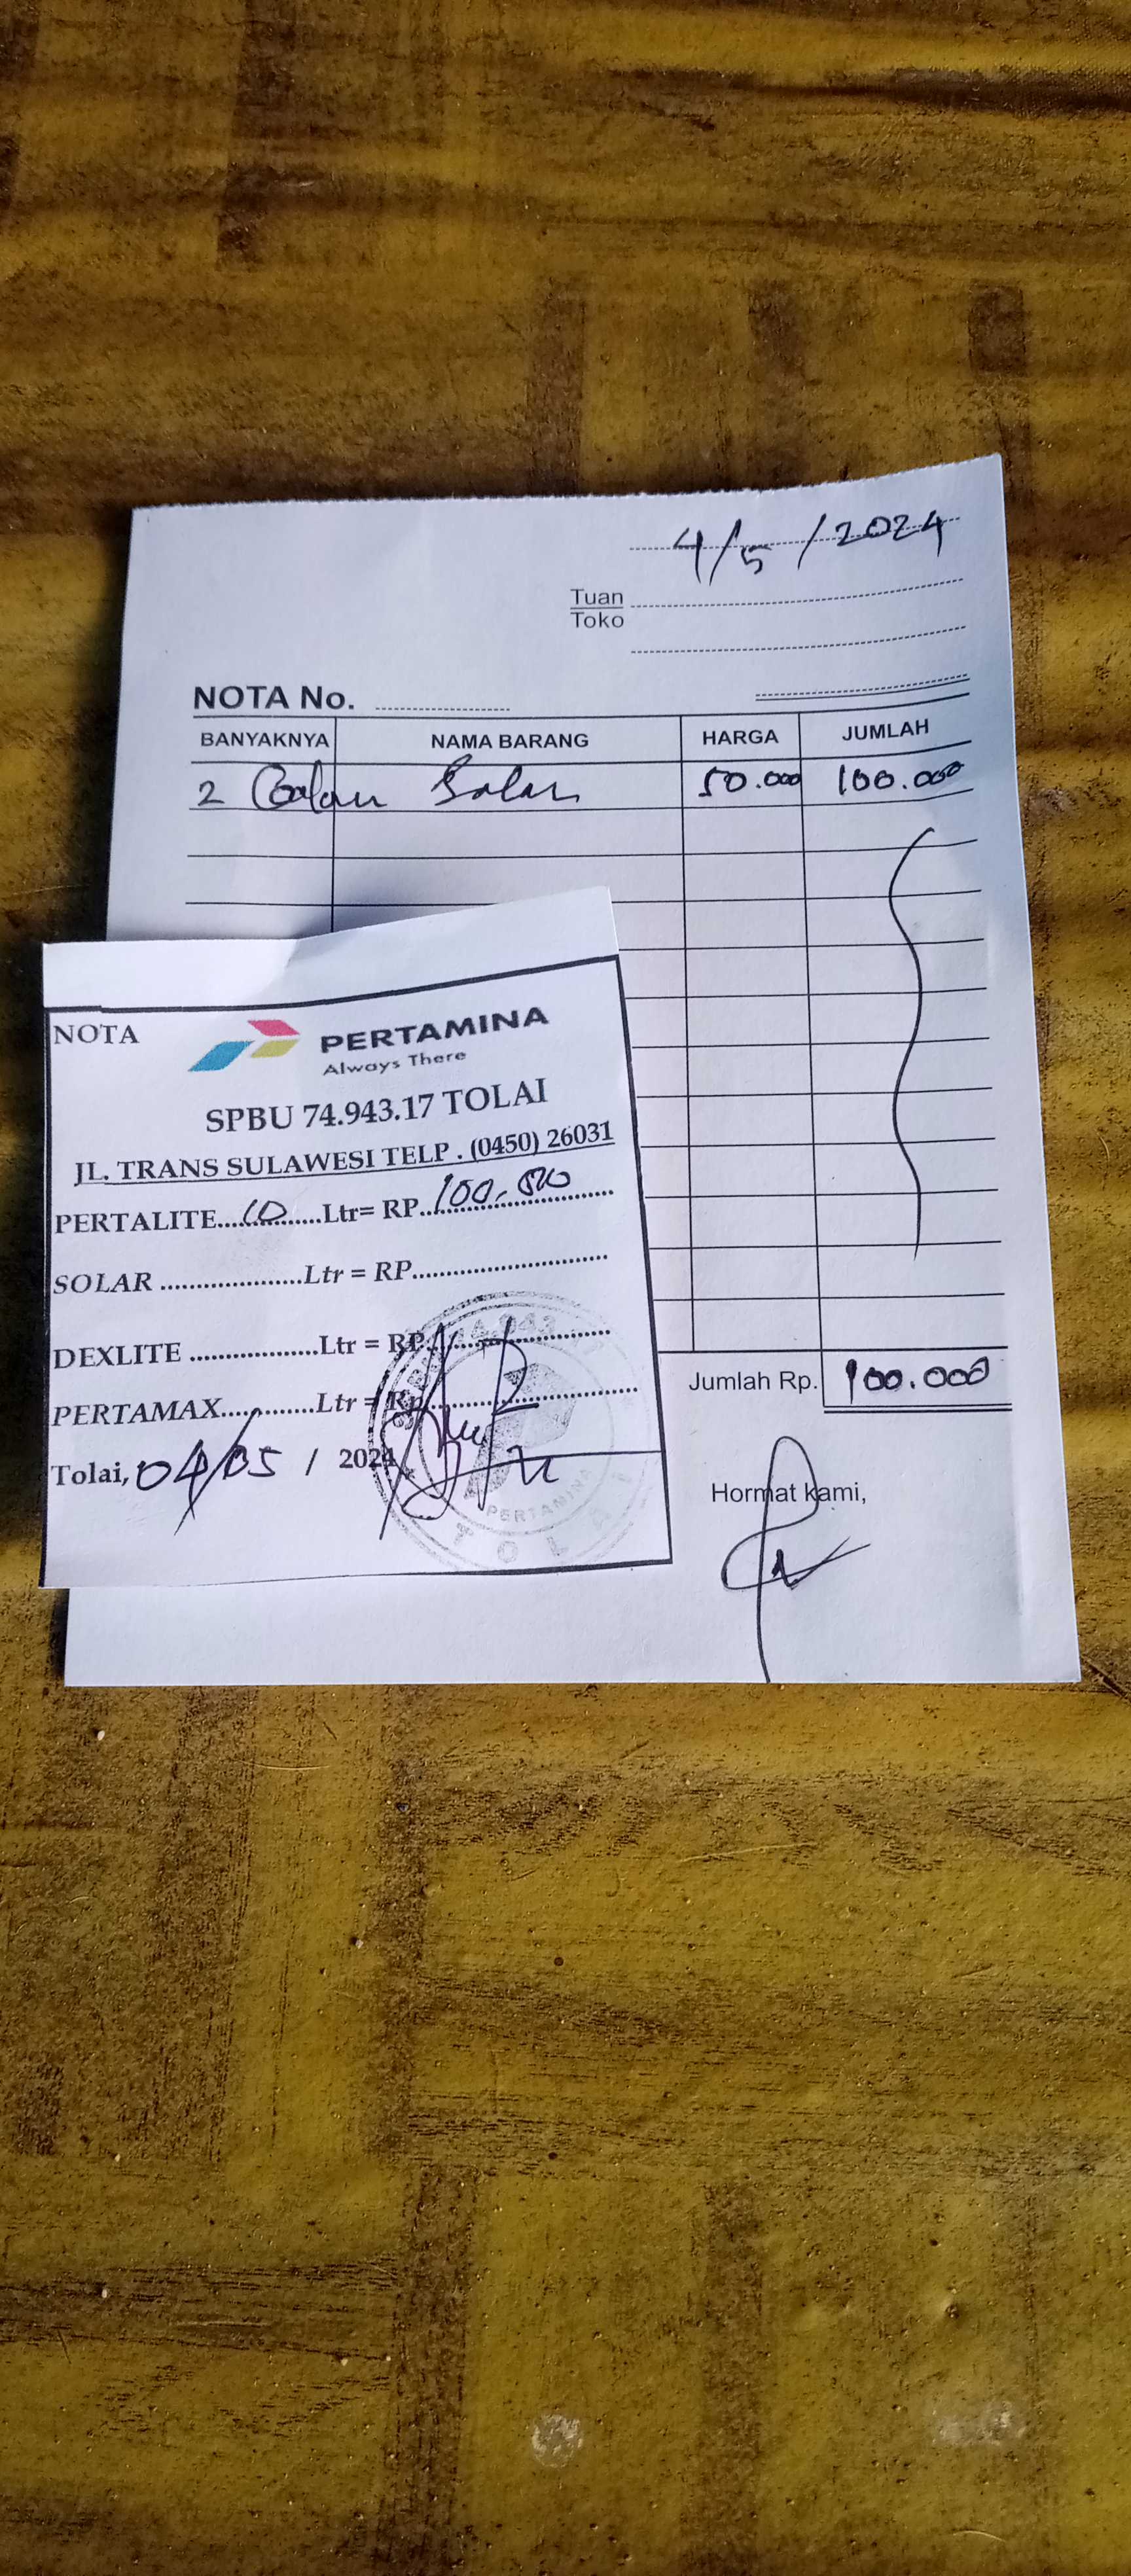 4/5/2024
Tuan
Toko
NOTA No.
BANYAKNYA NAMA BARANG HARGA JUMLAH
2 Galan Solar 50.000 100.000
Jumlah Rp. 100.000
Hormat kami,
NOTA
PERTAMINA
Always There
SPBU 74.943.17 TOLAI
JL. TRANS SULAWESI TELP . (0450) 26031
PERTALITE....10......Ltr= RP..100.000
SOLAR ....................Ltr = RP............................
DEXLITE ..................Ltr = RP............................
PERTAMAX.............Ltr = Rp..............................
Tolai, 04/05 / 2024
PERTAMINA
TOLAI